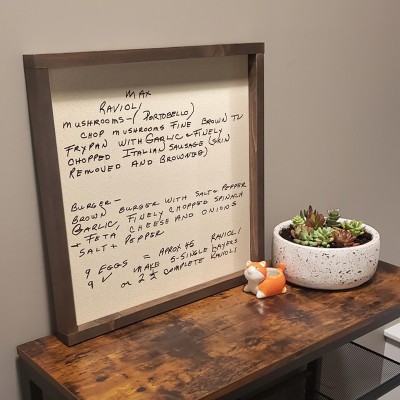 MAX
RAVIOLI
MUSHROOMS - (PORTOBELLO)
CHOP MUSHROOMS FINE BROWN IN
FRYPAN WITH GARLIC & FINELY
CHOPPED ITALIAN SAUSAGE (SKIN
REMOVED AND BROWNED)
BURGER -
BROWN BURGER WITH SALT & PEPPER
GARLIC, FINELY CHOPPED SPINACH
+ FETA CHEESE AND ONIONS
SALT + PEPPER
9 EGGS = APROX 45 RAVIOLI
9 MAKE 5-SINGLE LAYERS
OR 2 ½ COMPLETE RAVIOLI